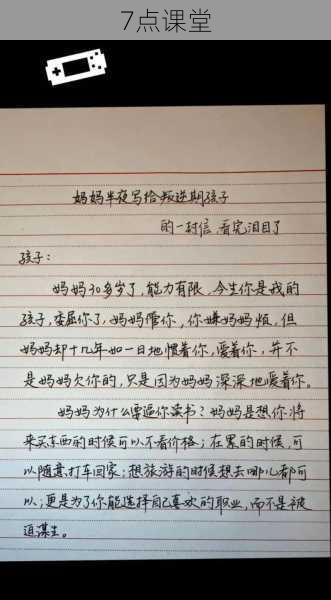 7点课堂
妈妈半夜写给叛逆期孩子
的一封信,看完泪目了
孩子:
妈妈30多岁了,能力有限,今生你是我的
孩子,委屈你了,妈妈管你,你嫌妈妈烦,但
妈妈却十几年如一日地惯着你,爱着你,并不
是妈妈欠你的,只是因为妈妈深深地暖着你。
妈妈为什么要逼你读书?妈妈是想你将
来买东西的时候可以不看价格;在累的时候,可
以随意打车回家;想旅游的时候想去哪儿都可
以;更是为了你能选择自己喜欢的职业,而不是被
迫谋生。